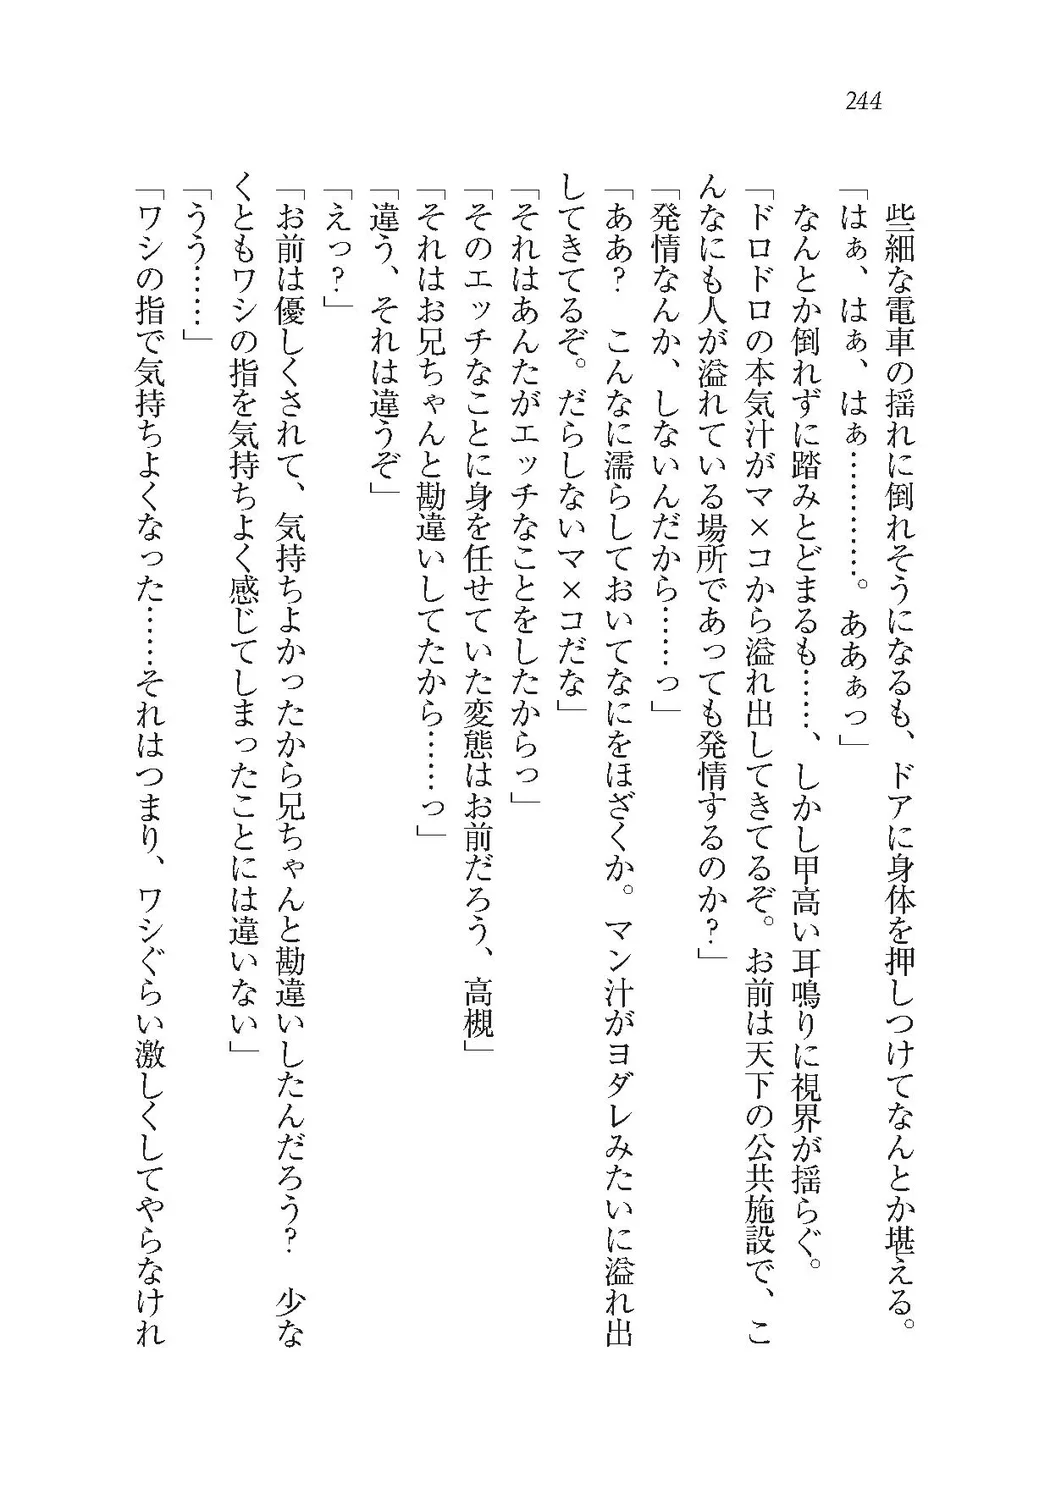 244
些細な電車の揺れに倒れそうになるも、ドアに身体を押しつけてなんとか堪える。
「はぁ、はぁ、はぁ…………。ああぁっ」
なんとか倒れずに踏みとどまるも……、しかし甲高い耳鳴りに視界が揺らぐ。
「ドロドロの本気汁がマ×コから溢れ出してきてるぞ。お前は天下の公共施設で、こ
んなにも人が溢れている場所であっても発情するのか？」
「発情なんか、しないんだから……っ」
「ああ？　こんなに濡らしておいてなにをほざくか。マン汁がヨダレみたいに溢れ出
してきてるぞ。だらしないマ×コだな」
「それはあんたがエッチなことをしたからっ」
「そのエッチなことに身を任せていた変態はお前だろう、高槻」
「それはお兄ちゃんと勘違いしてたから……っ」
「違う、それは違うぞ」
「えっ？」
「お前は優しくされて、気持ちよかったから兄ちゃんと勘違いしたんだろう？　少な
くともワシの指を気持ちよく感じてしまったことには違いない」
「うう……」
「ワシの指で気持ちよくなった……それはつまり、ワシぐらい激しくしてやらなけれ